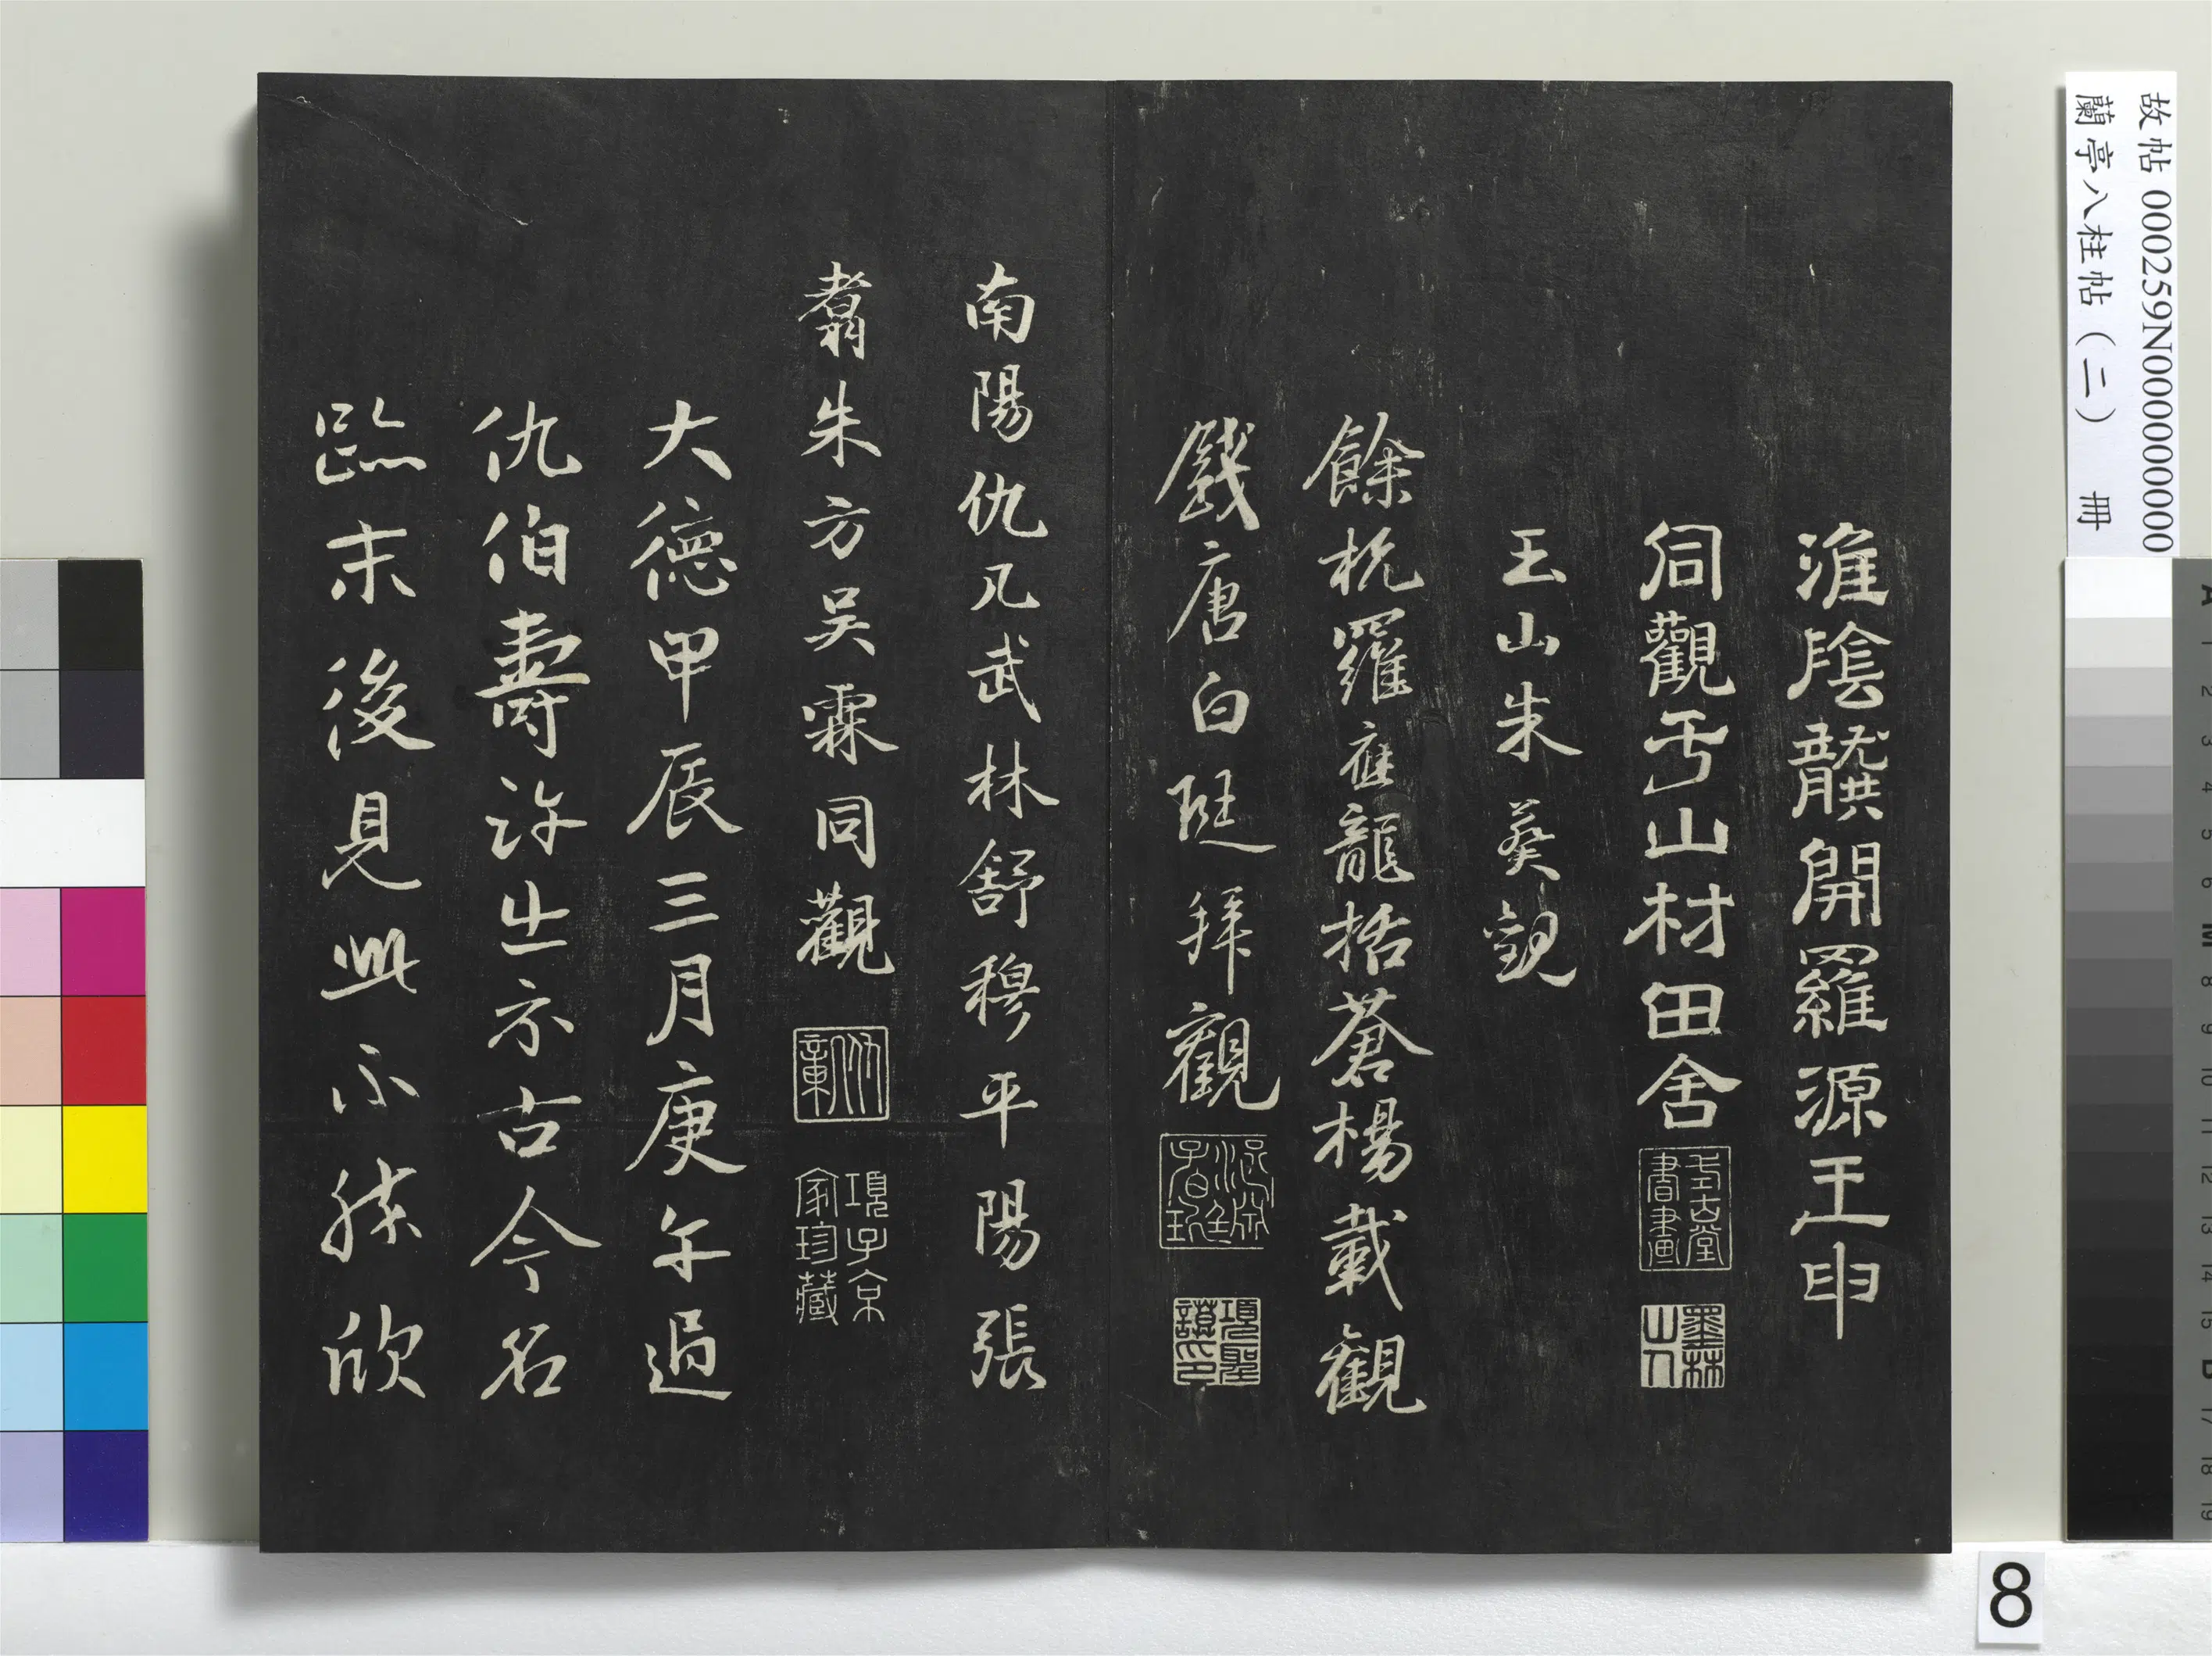 故帖 000259N000000000
蘭亭八柱帖（二） 冊
淮陰龔開羅源王申
同觀于山村田舍
王山朱葵觀
餘杭羅應龍括蒼楊載觀
錢唐白珽拜觀
南陽仇几武林舒穆平陽張
翥朱方吳霖同觀
大德甲辰三月庚午過
仇伯壽許出示古今名
臨末後見此不勝欣
墨林山人
項子京家珍藏
8